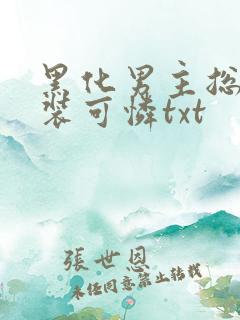 黑化男主总
装可怜txt
張世恩
未经同意禁止转载